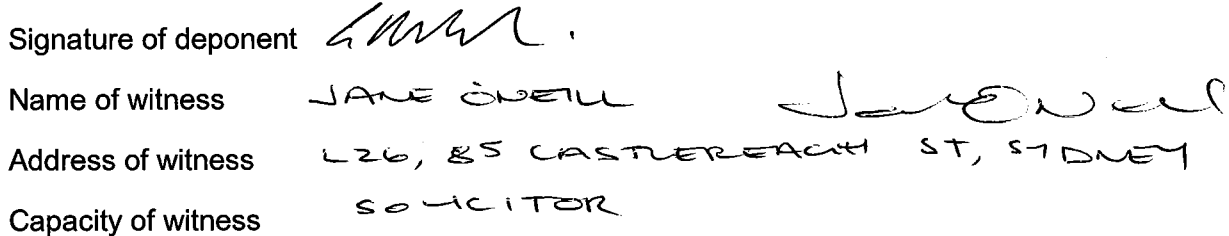 Signature of deponent
Name of witness JANE O'NEILL Jane O'Neill
Address of witness L26, 85 CASTLEREAGH ST, SYDNEY
Capacity of witness SOLICITOR